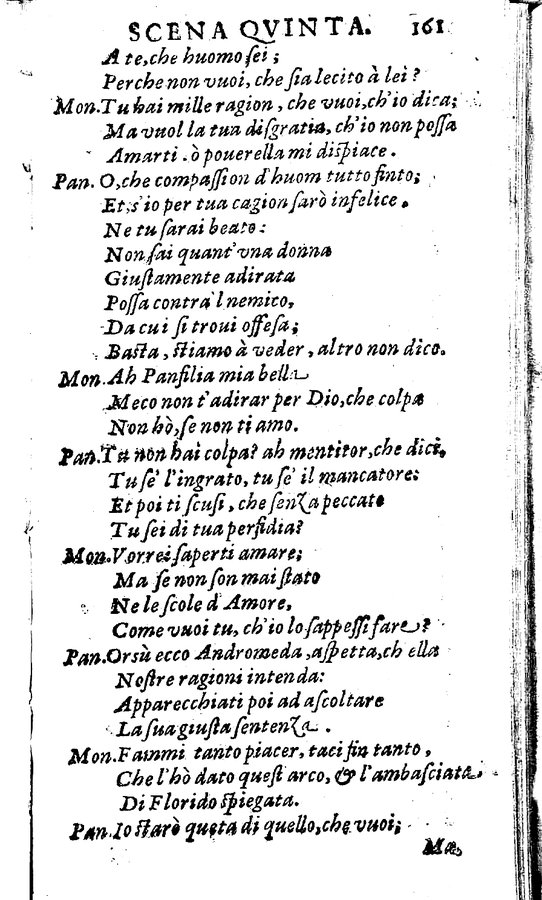 SCENA QVINTA. 161
A te, che huomo sei;
Perche non vuoi, che sia lecito à lei?
Mon. Tu hai mille ragion, che vuoi, ch'io dica;
Ma vuol la tua disgratia, ch'io non possa
Amarti. ò pouerella mi dispiace.
Pan. O, che compassion d'huom tutto finto;
Et, s'io per tua cagion sarò infelice.
Ne tu sarai beato:
Non sai quant'vna donna
Giustamente adirata
Possa contra'l nemico,
Da cui si troui offesa;
Basta, stiamo à veder, altro non dico.
Mon. Ah Panfilia mia bella
Meco non t'adirar per Dio, che colpa
Non hò, se non ti amo.
Pan. Tu non hai colpa? ah mentitor, che dici,
Tu se' l'ingrato, tu se' il mancatore:
Et poi ti scusi, che senza peccato
Tu sei di tua perfidia?
Mon. Vorrei saperti amare;
Ma se non son mai stato
Ne le scole d'Amore,
Come vuoi tu, ch'io lo sappessi fare?
Pan. Orsù ecco Andromeda, aspetta, ch ella
Nostre ragioni intenda:
Apparecchiati poi ad ascoltare
La sua giusta sentenza.
Mon. Fammi tanto piacer, taci fin tanto,
Che l'hò dato quest arco, & l'ambasciata
Di Florido spiegata.
Pan. Io starò queta di quello, che vuoi;
Ma,